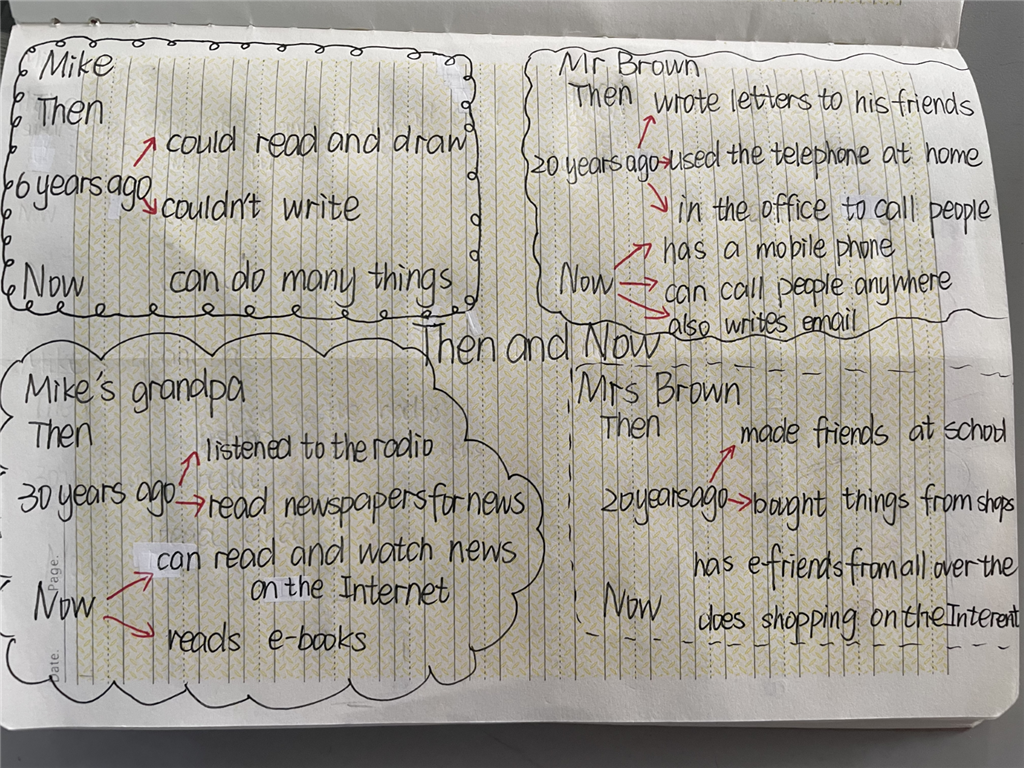 Mike
Then
could read and draw
6 years ago
couldn't write
Now can do many things
Mr Brown
Then wrote letters to his friends
20 years ago used the telephone at home
in the office to call people
has a mobile phone
Now can call people anywhere
also writes email
Then and Now
Mike's grandpa
Then
listened to the radio
30 years ago read newspapers for news
can read and watch news
on the Internet
Now
reads e-books
Mrs Brown
Then
made friends at school
20 years ago bought things from shops
has e-friends from all over the
Now does shopping on the Interent
Date. Page.